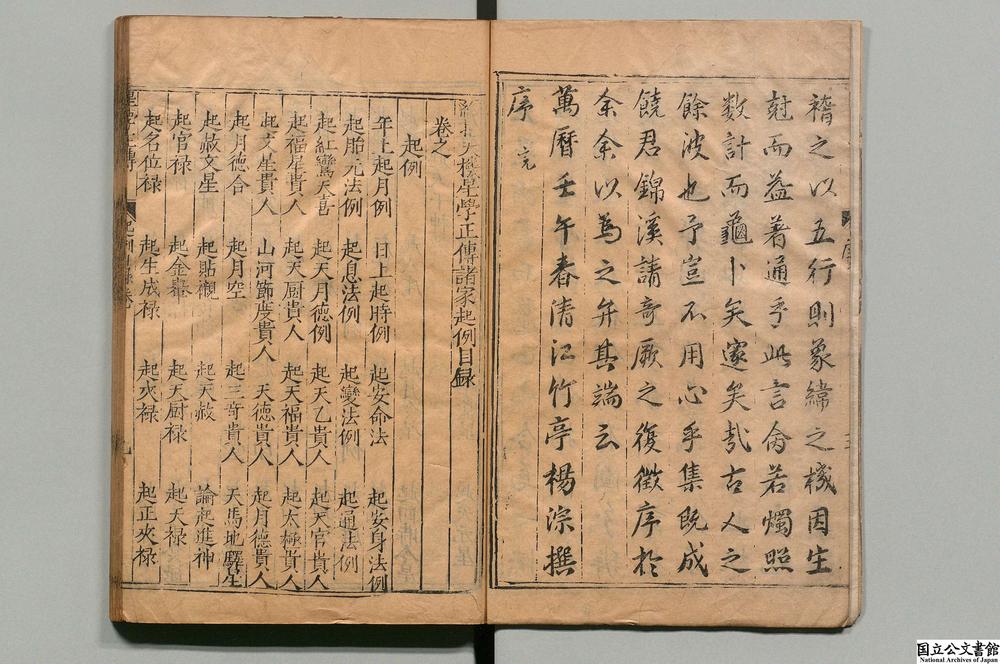 襀之以五行則象緯之機因生
尅而益著通乎此言禽若燭照
数計而龜卜矣邃矣哉古人之
餘波也予豈不用心乎集既成
饒君錦溪請竒厥之復徵序於
余余以為之弁其端云
萬曆壬午春清江竹亭楊淙撰
序 完
天機星學正傳諸家起例目録
卷之
起例
年上起月例 日上起時例 起安命法 起安身法例
起胎元法例 起息法例 起變法例 起通法例
起紅鸞天喜 起天月德例 起天乙貴人 起天官貴人
起福星貴人 起天厨貴人 起天福貴人 起太極貴人
起文星貴人 山河節度貴人 天德貴人 起月德貴人
起月德合 起月空 起三竒貴人 天馬地驛星
起赦文星 起貼觀 起天赦 論起進神
起官禄 起金轝 起天厨禄 起天禄
起名位禄 起生成禄 起夾禄 起正夾禄
国立公文書館
National Archives of Japan